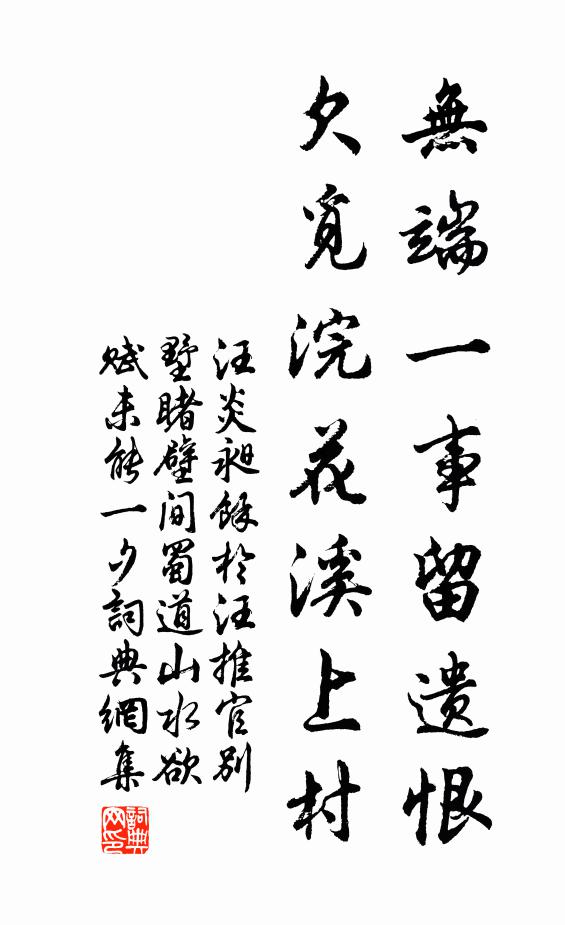 無端一事留遺恨
欠覓浣花溪上村
汪炎昶餘於汪推官別
墅睹壁間蜀道山水欲
賦未能一夕詞典網集
詞典網印